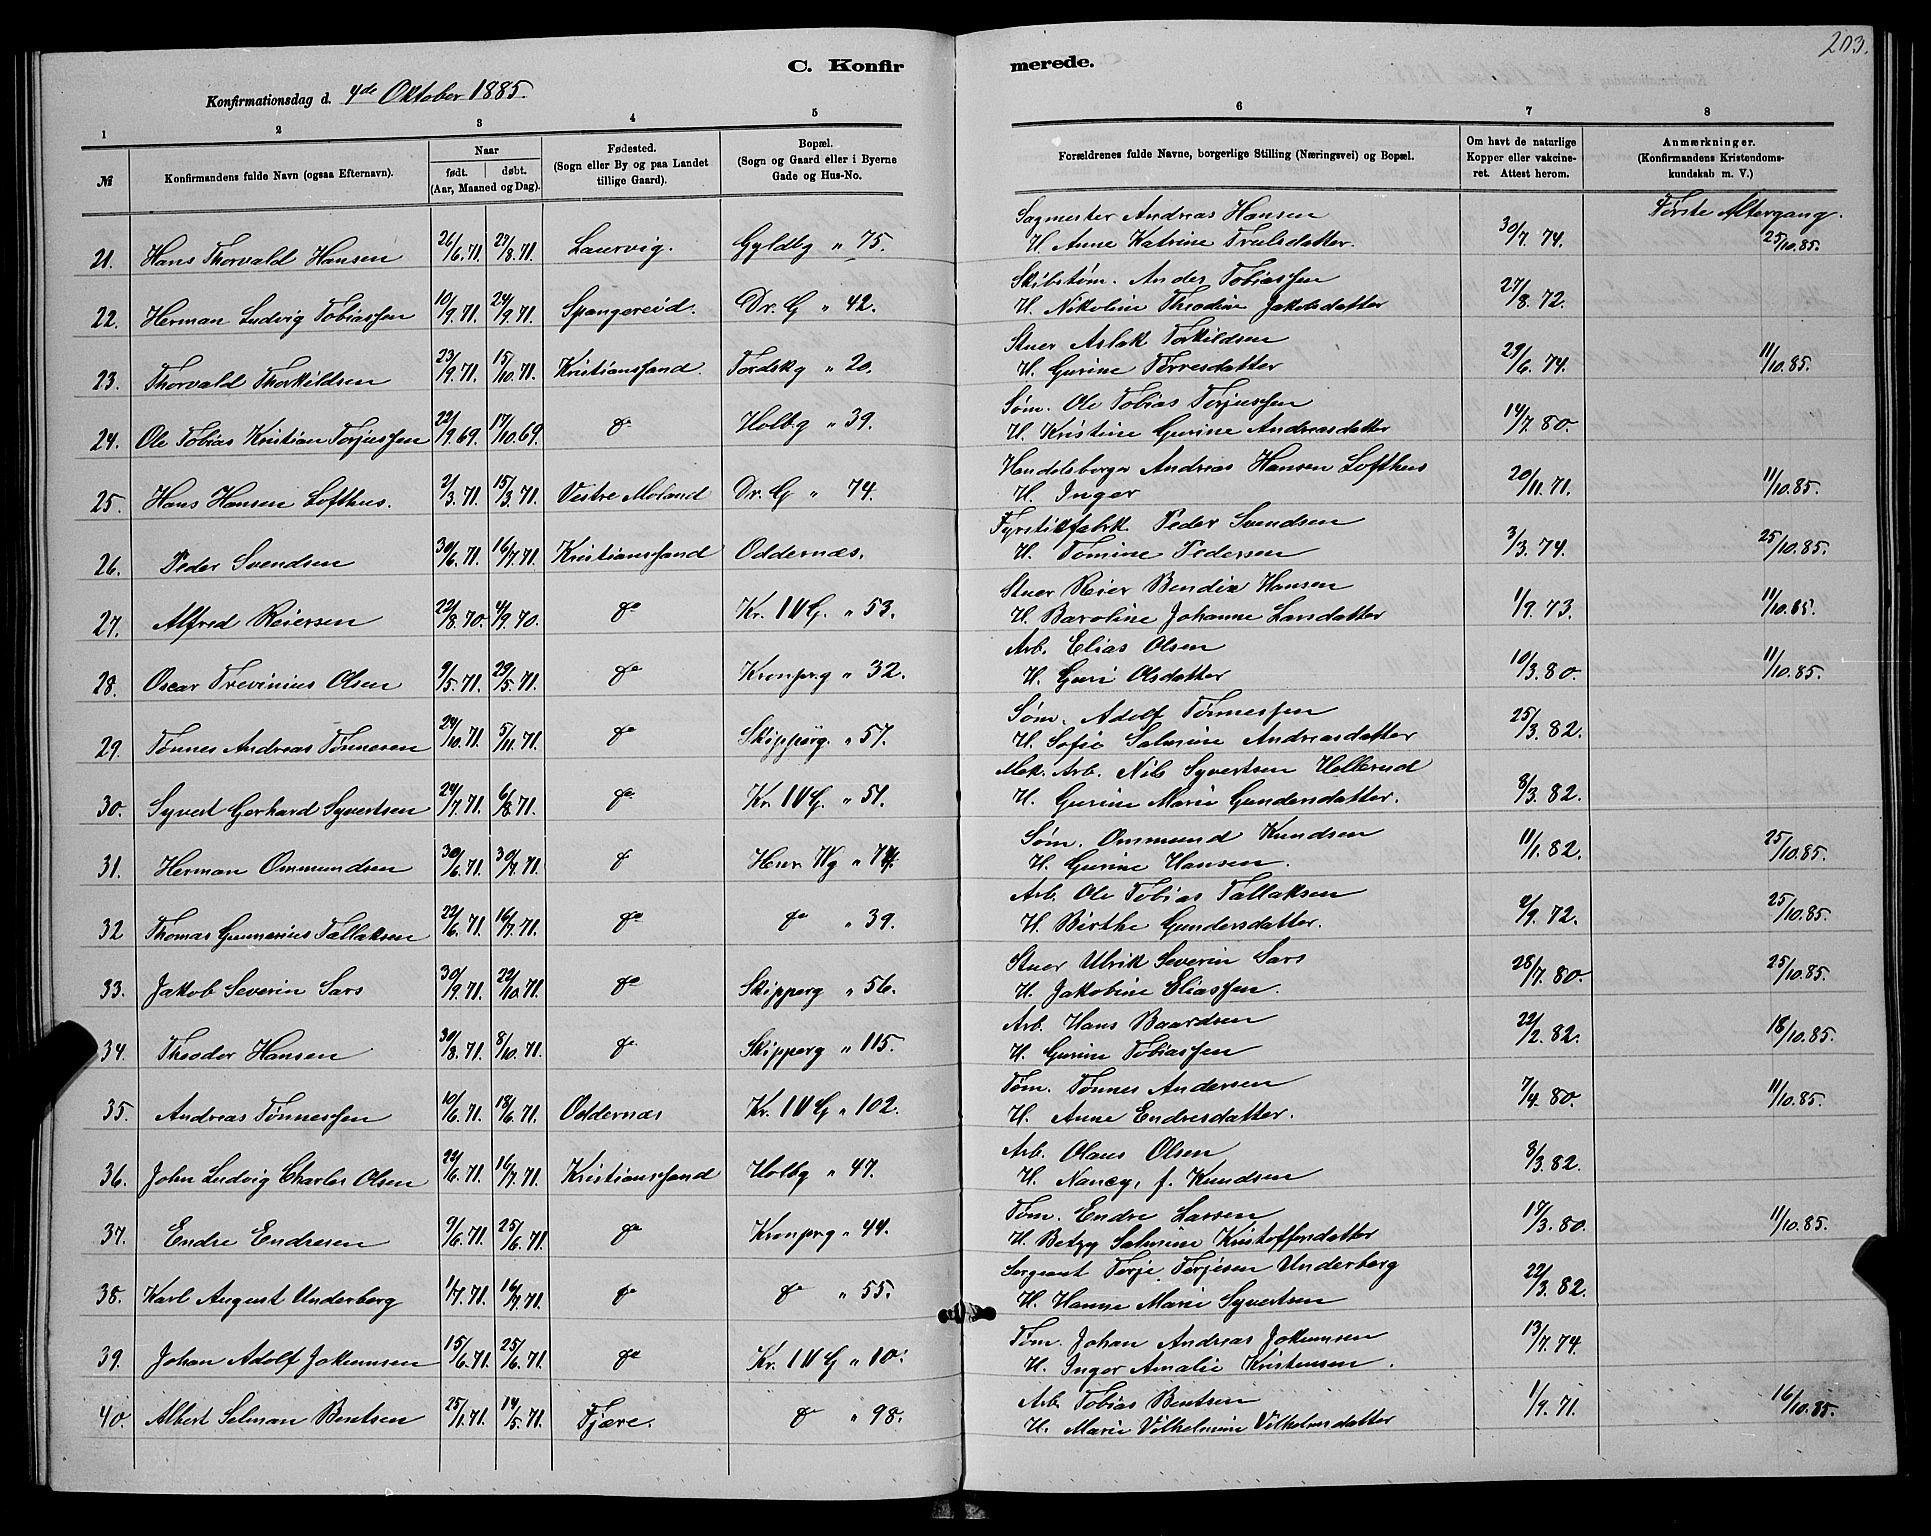 203.
C. Konfirmerede.
Konfirmationsdag d. 4de Oktober 1885.
1 2 3 4 5 6 7 8
№ Konfirmandens fulde Navn (ogsaa Efternavn). Naar født. døbt. (Aar, Maaned og Dag). Fødested. (Sogn eller By og paa Landet tillige Gaard). Bopæl. (Sogn og Gaard eller i Byerne Gade og Hus-No. Forældrenes fulde Navne, borgerlige Stilling (Næringsvei) og Bopæl. Om havt de naturlige Kopper eller vakcineret. Attest herom. Anmærkninger. (Konfirmandens Kristendomskundskab m. V.)
Første Altergang.
Sagmester Andreas Hansen
21. Hans Thorvald Hansen 26/6.71. 27/8.71. Laurvig. Gyldbg " 75. H. Anne Katrine Trulsdatter. 30/7.74. 25/10.85.
Skibstøm. Andes Tobiassen
22. Herman Ludvig Tobiassen 10/9.71. 24/9.71. Spangereid. Dr. G " 42. H. Nikoline Theodine Jakobsdatter 27/8.72.
Stuer Aslak Torkildsen
23. Thorvald Thorkildsen 23/9.71. 15/10.71. Kristianssand. Tordskg " 20. H. Gurine Tørresdatter 29/6.74. 11/10.85.
Søm. Ole Tobias Torjussen
24. Ole Tobias Kristian Torjussen 22/9.69. 17/10.69. do Holbg " 39. H. Kristine Gurine Andreasdatter 14/7.80.
Handelsborger Andreas Hansen Lofthus
25. Hans Hansen Lofthus. 2/3.71. 15/3.71. Vestre Moland Dr. G " 74. H. Inger 20/11.71. 11/10.85.
Fyrstikfabrk. Peder Svendsen
26. Peder Svendsen 30/6.71. 16/7.71. Kristianssand Oddernæs. H. Tomine Pedersen 3/3.74. 25/10.85.
Stuer Reier Bendix Hansen
27. Alfred Reiersen 22/8.70. 4/9.70. do Kr. IV G. " 53. H. Baroline Johanne Larsdatter 1/9.73. 11/10.85.
Arb. Elias Olsen
28. Oscar Trevinius Olsen 9/5.71. 29/5.71. do Kronprg " 32. H. Guri Olsdatter 10/3.80. 11/10.85.
Søm. Adolf Tønnessen
29. Tønnes Andreas Tønnesen 24/10.71. 5/11.71. do Skipperg. " 57. H. Sofie Salmine Andreasdatter 25/3.82.
Mek. Arb. Nils Syvertsen Hellerud
30. Syvert Gerhard Syvertsen 24/7.71. 6/8.71. do Kr. IV G. " 51. H. Gurine Marie Gundersdatter. 8/3.82.
Søm. Ommund Knudsen
31. Herman Ommundsen 30/6.71. 30/7.71. do Henr. Wg " 74. H. Gurine Hansen. 11/1.82. 25/10.85.
Arb. Ole Tobias Tallaksen
32 Thomas Gunnerius Tallaksen 22/6.71. 16/7.71. do do " 39. H. Birthe Gundersdatter. 2/9.72. 25/10.85.
Stuer Ulrik Severin Sars
33. Jakob Severin Sars 30/9.71. 22/10.71. do Skipperg " 56. H. Jakobine Eliassen. 28/7.80. 25/10.85
Arb. Hans Baardsen
34. Theodor Hansen 30/8.71. 8/10.71. do Skipperg " 115. H. Gurine Tobiassen 22/2.82. 18/10.85.
Tøm. Tønnes Andersen
35. Andreas Tønnessen 10/6.71. 18/6.71. Oddernæs Kr. IV G " 102. H. Anne Endresdatter. 7/4.80. 11/10.85.
Arb. Olaus Olsen
36. John Ludvig Charles Olsen 22/6.71. 16/7.71. Kristianssand Holbg " 47. H. Nancy, f. Knudsen 8/3.82.
Tøm. Endre Larsen
37. Endre Endresen 9/6.71. 25/6.71. do Kronprg " 44. H. Betzy Salmine Kristoffersdatter 19/3.80. 11/10.85.
Sergeant Terje Terjesen Underberg
38. Karl August Underberg 1/7.71. 16/7.71. do do " 55. H. Hanne Marie Syvertsen 22/3.82.
Tøm. Johan Andreas Jokumsen
39. Johan Adolf Jokumsen 15/6.71. 25/6.71. do Kr. IV G " 10. H. Inger Amalie Kristensen. 13/7.74.
Arb. Tobias Bentsen
40. Albert Salman Bentsen 25/1.71. 14/5.71. Fjære. do " 98. H. Marie Vilhelmine Vilhelmsdatter 1/9.71. 16/10.85.